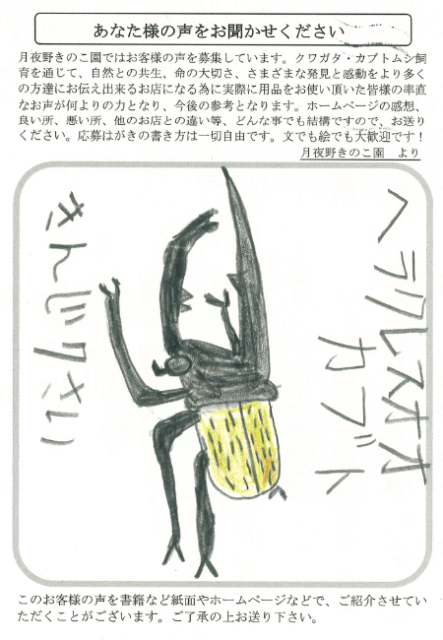 あなた様の声をお聞かせください
月夜野きのこ園ではお客様の声を募集しています。クワガタ・カブトムシ飼
育を通じて、自然との共生、命の大切さ、さまざまな発見と感動をより多く
の方達にお伝え出来るお店になる為に実際に用品をお使い頂いた皆様の率直
なお声が何よりの力となり、今後の参考となります。ホームページの感想、
良い所、悪い所、他のお店との違い等、どんな事でも結構ですので、お送り
ください。応募はがきの書き方は一切自由です。文でも絵でも大歓迎です！
月夜野きのこ園　より
ヘラクレスオオ
カブト
さんじゅうさい
このお客様の声を書籍など紙面やホームページなどで、ご紹介させてい
ただくことがございます。ご了承の上お送り下さい。